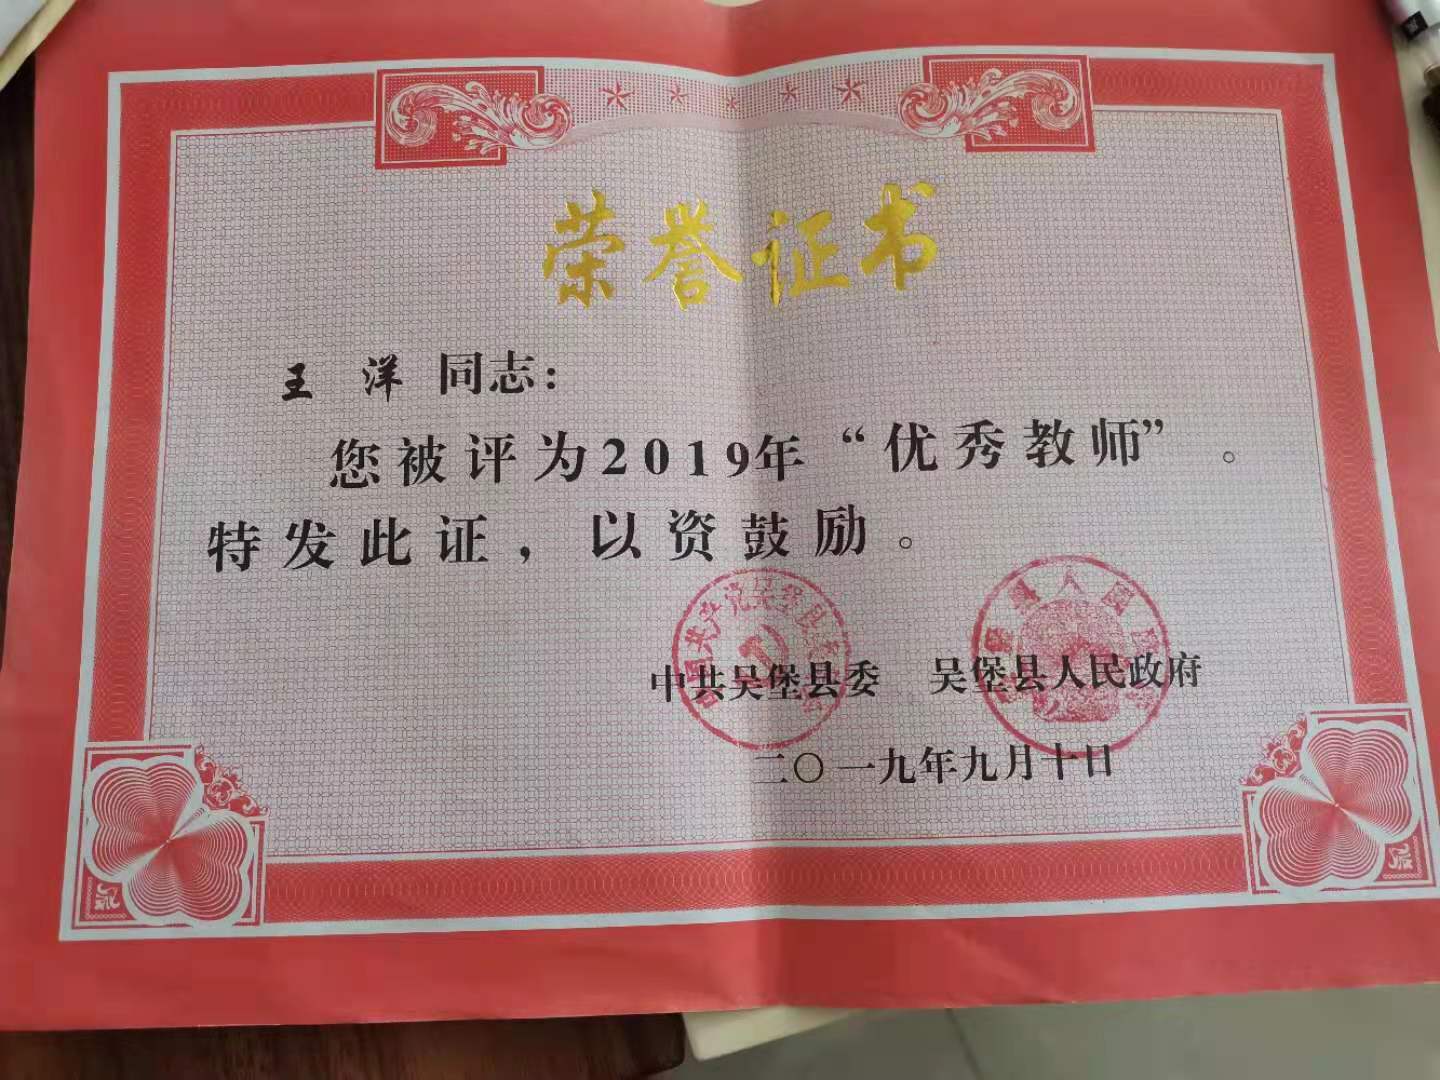 荣誉证书
王 洋 同志：
您被评为2019年“优秀教师”。
特发此证，以资鼓励。
中共吴堡县委 吴堡县人民政府
二〇一九年九月十日
中国共产党吴堡县委